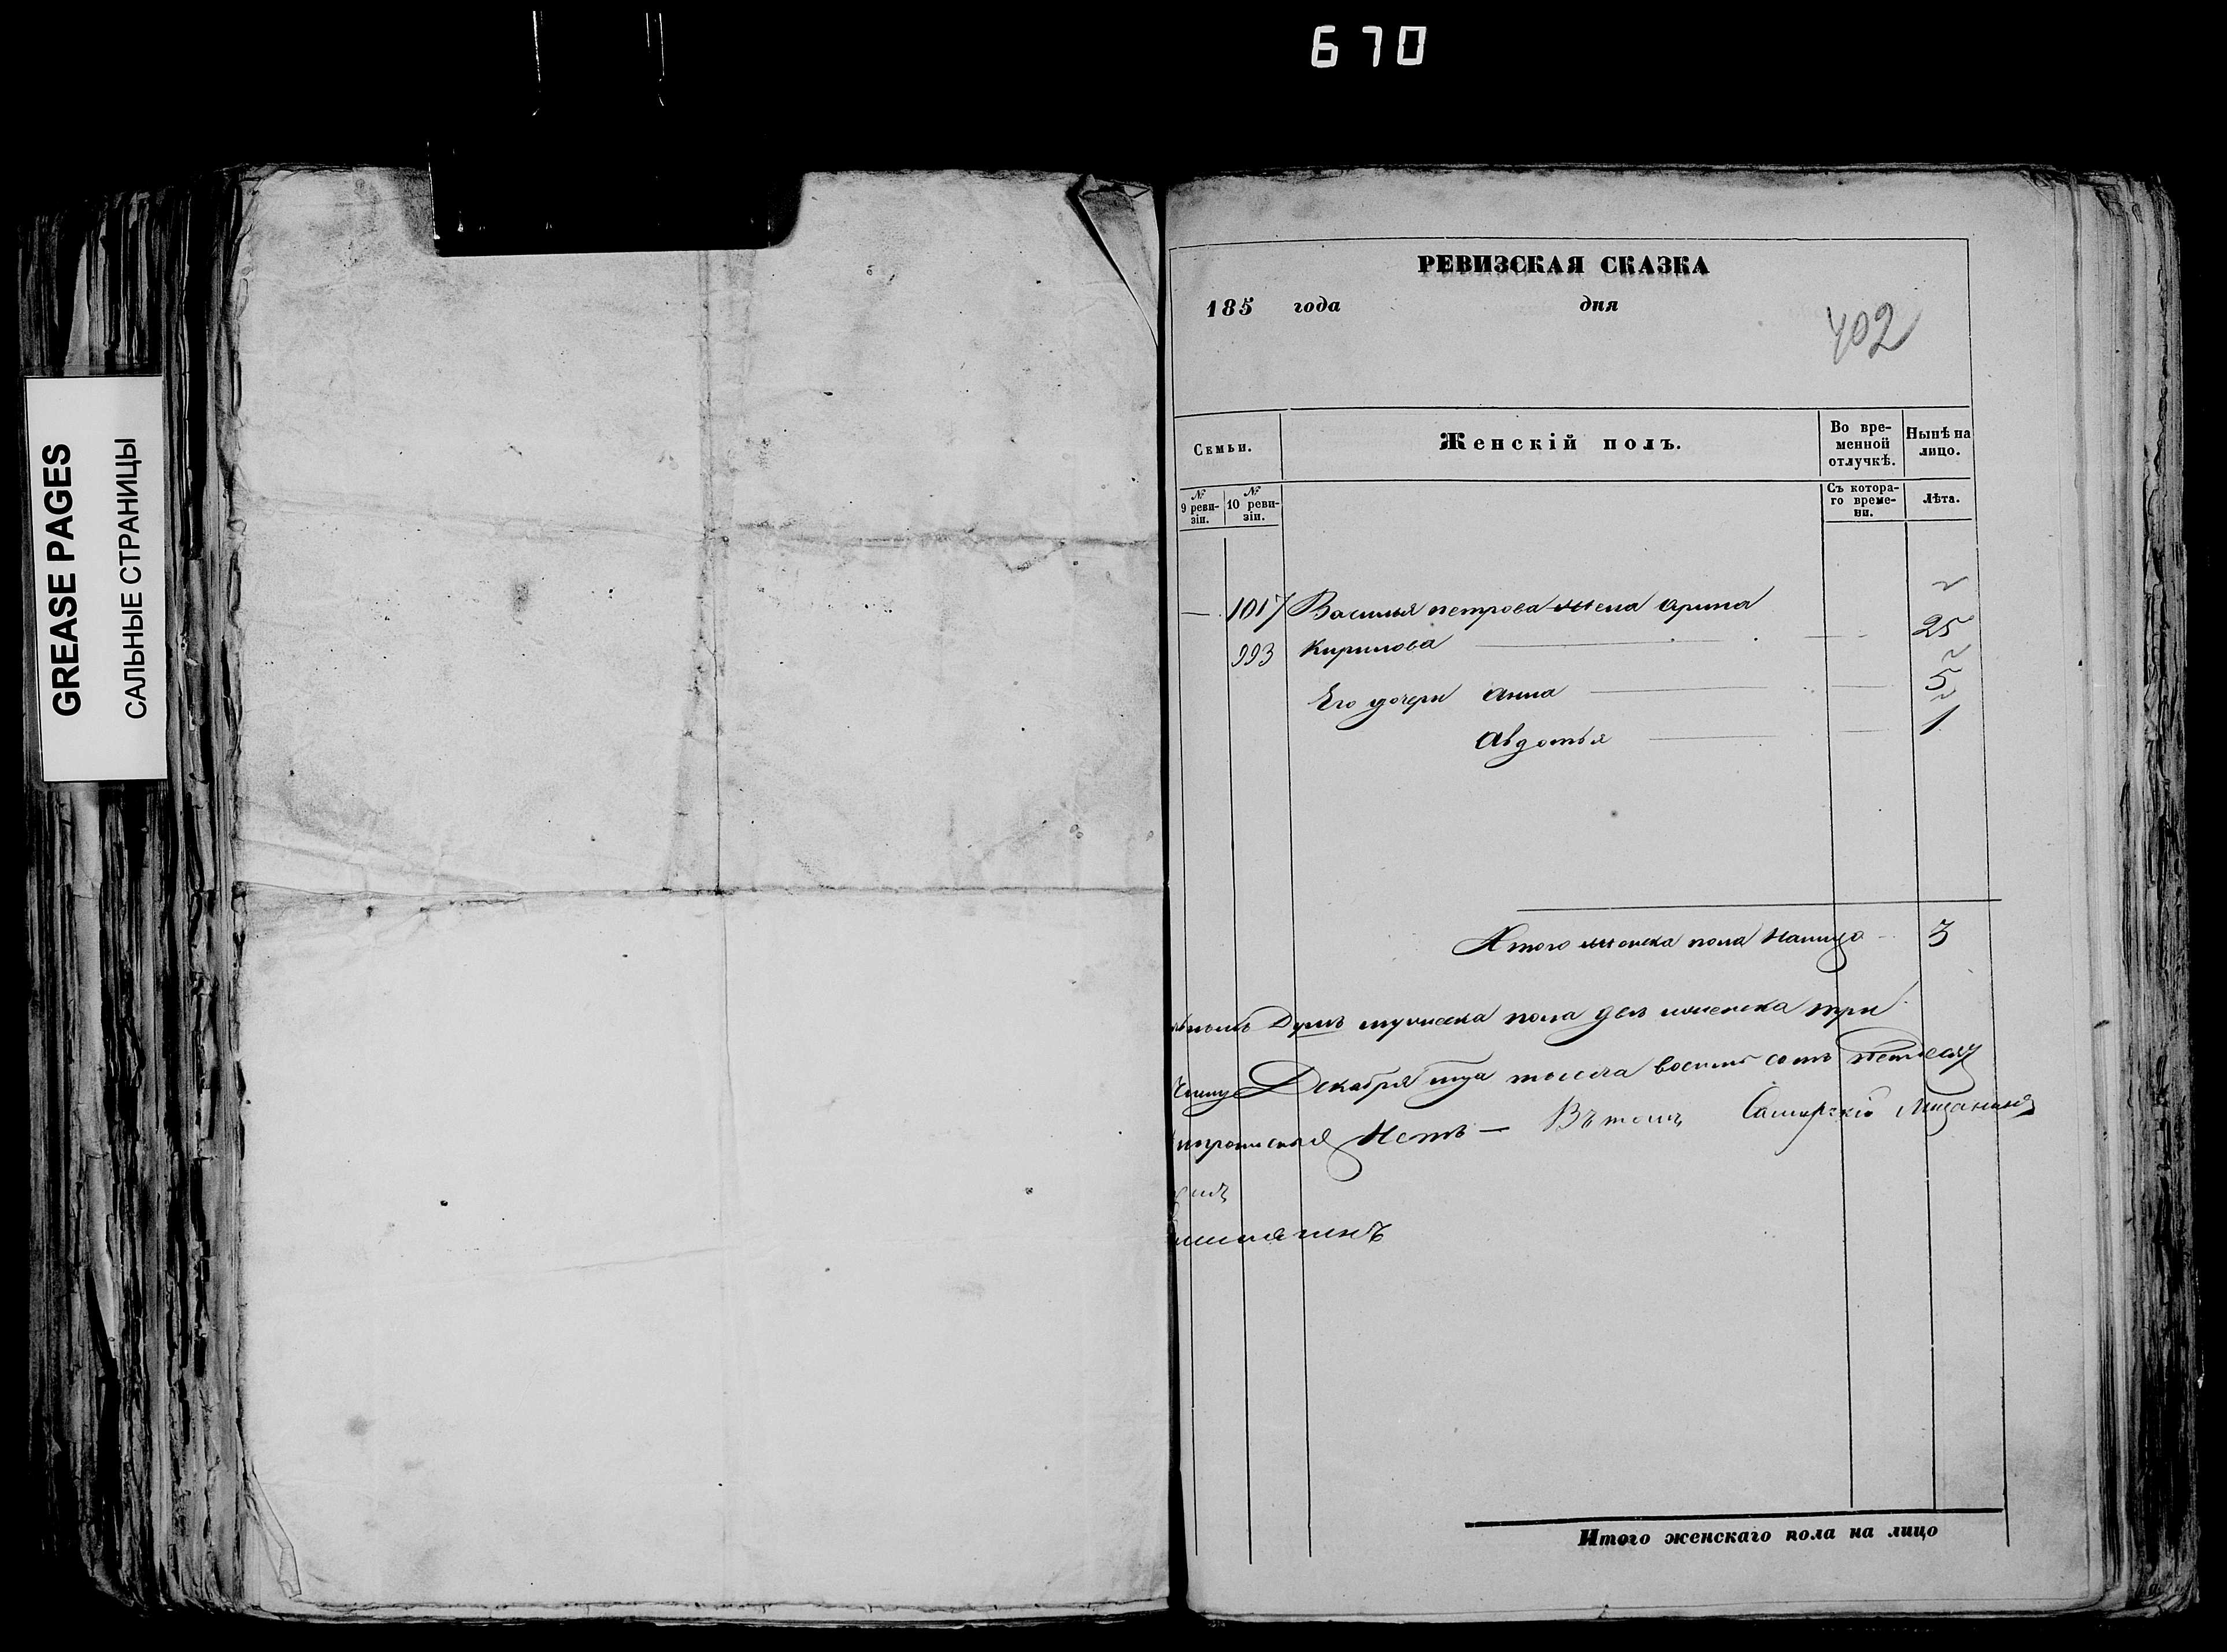 670
GREASE PAGES
САЛЬНЫЕ СТРАНИЦЫ
РЕВИЗСКАЯ СКАЗКА
185 года дня
402
Семьи.
Женскій полъ.
Во вре-
менной
отлучкѣ.
Нынѣ на
лицо.
№
9 реви-
зіи.
№
10 реви-
зіи.
Съ котора-
го време-
ни.
Лѣта.
— 1017 Василья петрова жена арина
993 Кирилова 25
Его дочери анна 5
авдотья 1
Итого женска пола налицо 3
Душъ мужеска пола две женска три
Декабря мца тысеча восемь сотъ
нетъ — Въ томъ Самарскій Мещанинъ
Итого женскаго пола на лицо